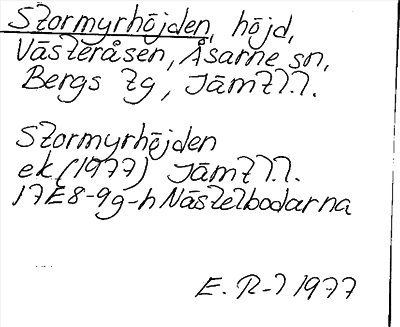 Stormyrhöjden, höjd,
Västeråsen, Åsarne sn,
Bergs tg, Jämtl.l.
Stormyrhöjden
ek. (1977) Jämtl.l.
17E8-9g-h Nästelbodarna
E. R-l 1977